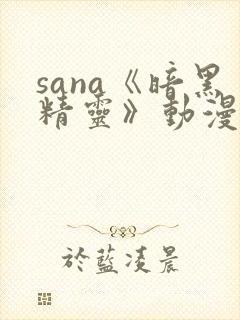 sana《暗黑
精靈》動漫
於藍凌晨